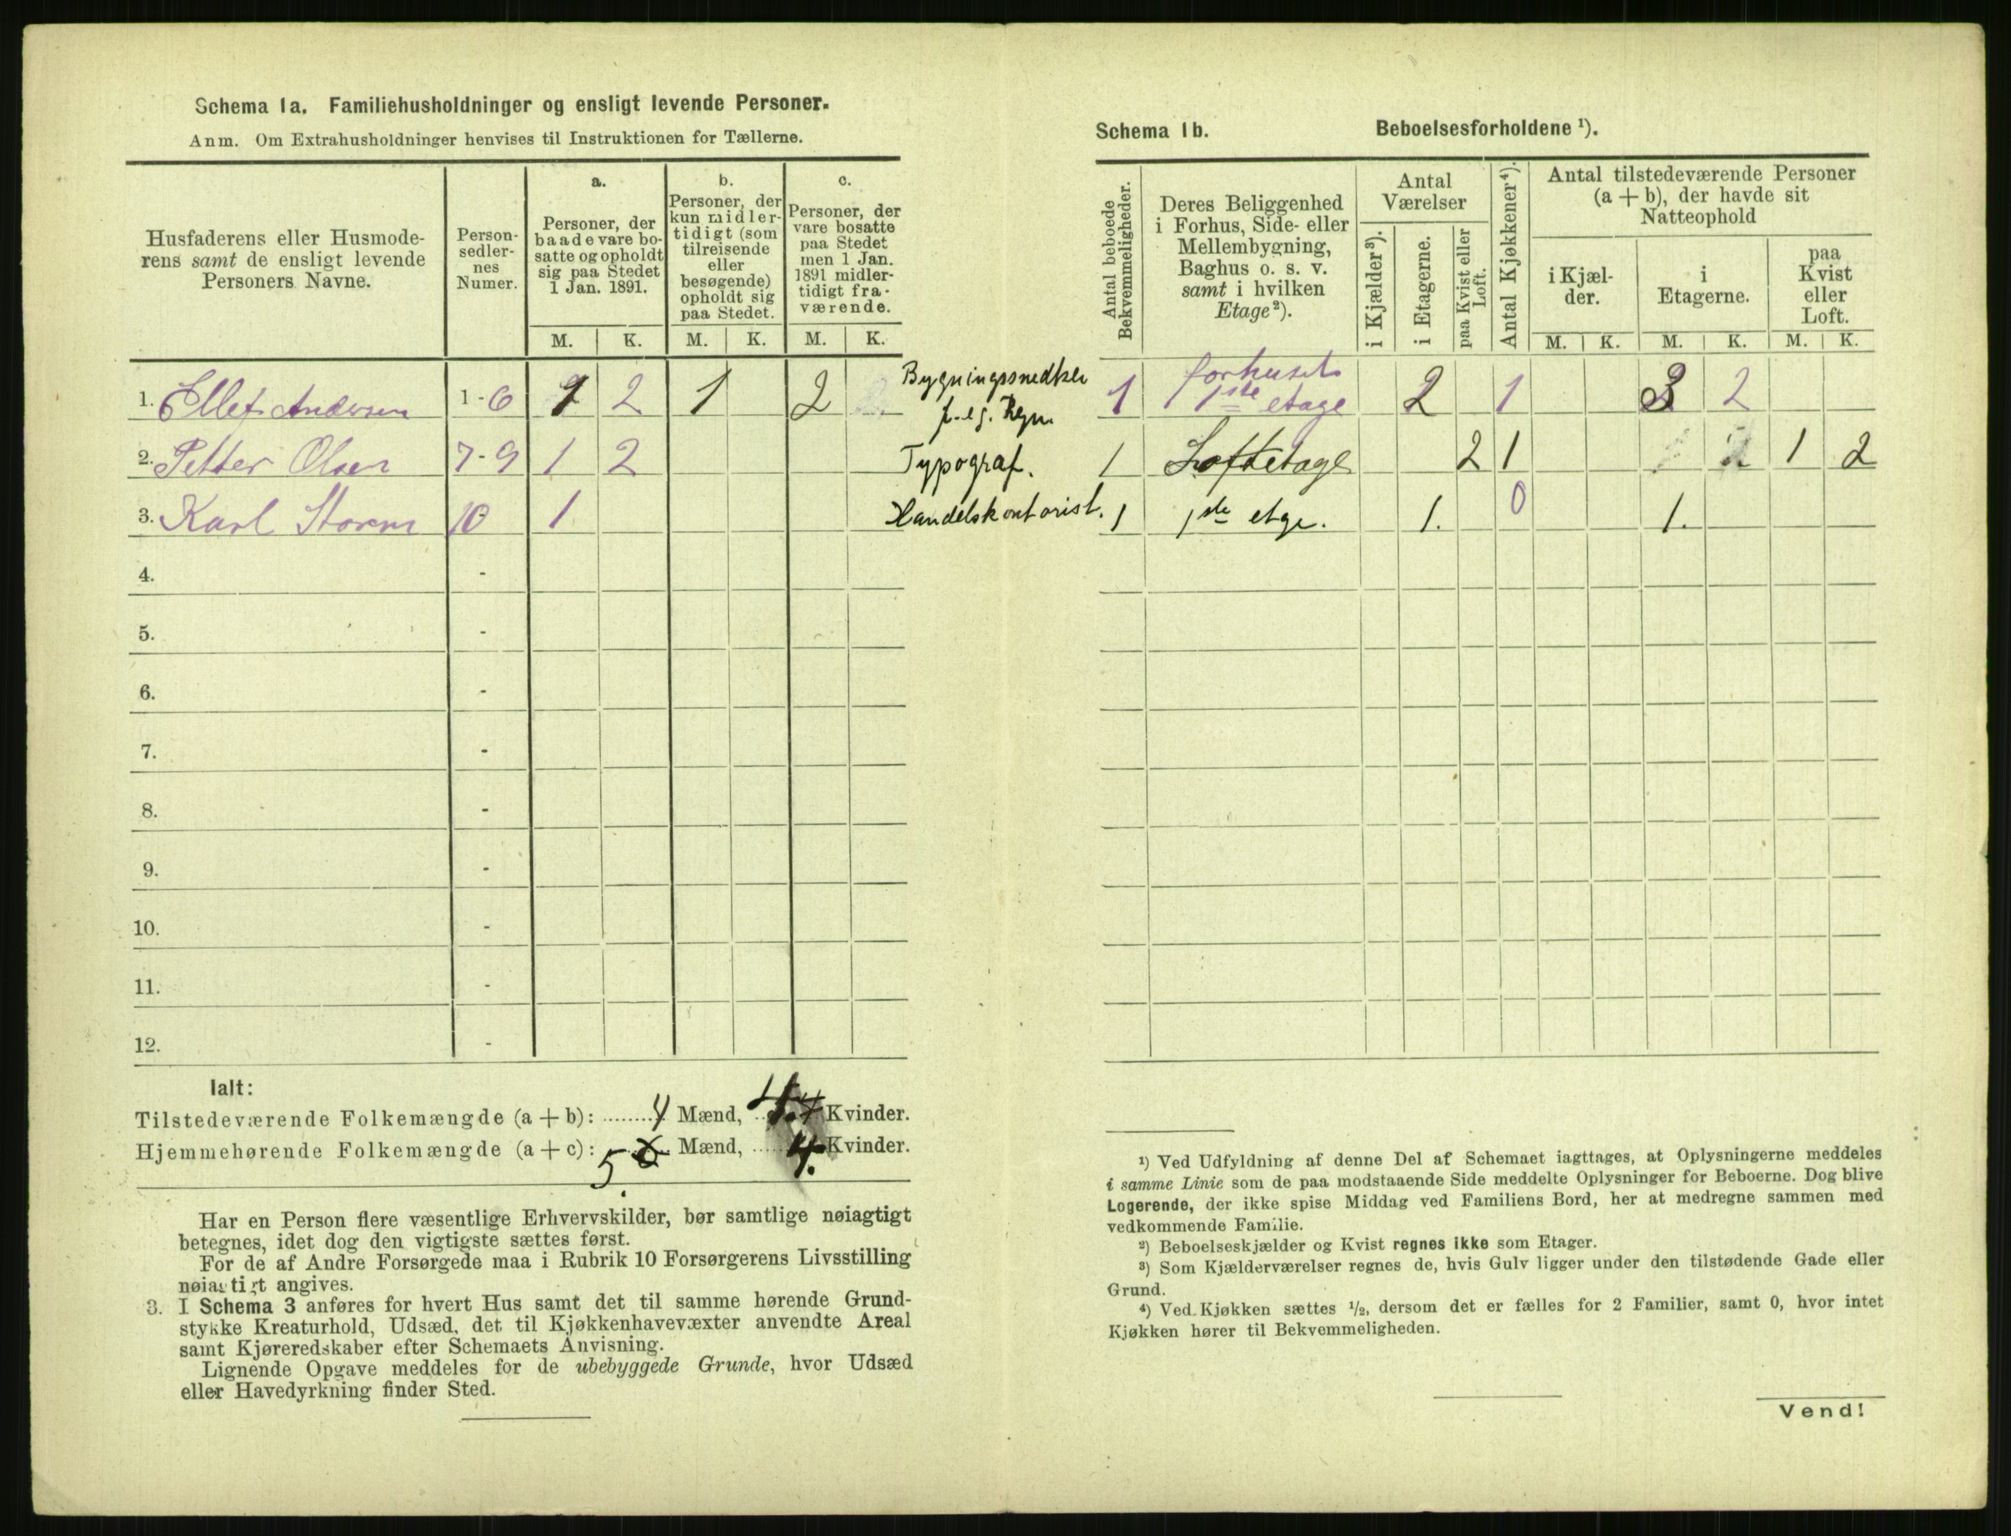 Schema 1a. Familiehusholdninger og ensligt levende Personer.
Anm. Om Extrahusholdninger henvises til Instruktionen for Tællerne.
Husfaderens eller Husmode-
rens samt de ensligt levende
Personers Navne.
Person-
sedler-
nes
Numer.
a.
Personer, der
baade vare bo-
satte og opholdt
sig paa Stedet
1 Jan. 1891.
b.
Personer, der
kun midler-
tidigt (som
tilreisende
eller
besøgende)
opholdt sig
paa Stedet.
c.
Personer, der
vare bosatte
paa Stedet
men 1 Jan.
1891 midler-
tidigt fra-
værende.
M. K. M. K. M. K.
1. Ellef Andersen 1-6 2 1 2 Bygningssnedker
f. eg. Regn.
2. Petter Olsen 7-9 1 2 Typograf.
3. Karl Storm 10 1 Handelskontorist.
4. -
5. -
6. -
7. -
8. -
9. -
10. -
11. -
12. -
Ialt:
Tilstedeværende Folkemængde (a + b): 4 Mænd, 4 Kvinder.
Hjemmehørende Folkemængde (a + c): 5. Mænd, 4. Kvinder.
Har en Person flere væsentlige Erhvervskilder, bør samtlige nøiagtigt
betegnes, idet dog den vigtigste sættes først.
For de af Andre Forsørgede maa i Rubrik 10 Forsørgerens Livsstilling
nøiagtigt angives.
3. I Schema 3 anføres for hvert Hus samt det til samme hørende Grund-
stykke Kreaturhold, Udsæd, det til Kjøkkenhavevæxter anvendte Areal
samt Kjøreredskaber efter Schemaets Anvisning.
Lignende Opgave meddeles for de ubebyggede Grunde, hvor Udsæd
eller Havedyrkning finder Sted.
Schema 1b. Beboelsesforholdene ¹).
Antal beboede
Bekvemmeligheder.
Deres Beliggenhed
i Forhus, Side- eller
Mellembygning,
Baghus o. s. v.
samt i hvilken
Etage²).
Antal
Værelser
i Kjælder³).
i Etagerne.
paa Kvist eller
Loft.
Antal Kjøkkener⁴).
Antal tilstedeværende Personer
(a + b), der havde sit
Natteophold
i Kjæl-
der.
i
Etagerne.
paa
Kvist
eller
Loft.
M. K. M. K. M. K.
1 forhusets
1ste etage 2 1 3 2
1 Loftetage 2 1 1 2
1 1ste etge. 1. 0 1.
¹) Ved Udfyldning af denne Del af Schemaet iagttages, at Oplysningerne meddeles
i samme Linie som de paa modstaaende Side meddelte Oplysninger for Beboerne. Dog blive
Logerende, der ikke spise Middag ved Familiens Bord, her at medregne sammen med
vedkommende Familie.
²) Beboelseskjælder og Kvist regnes ikke som Etager.
³) Som Kjælderværelser regnes de, hvis Gulv ligger under den tilstødende Gade eller
Grund.
⁴) Ved Kjøkken sættes ½, dersom det er fælles for 2 Familier, samt 0, hvor intet
Kjøkken hører til Bekvemmeligheden.
Vend!